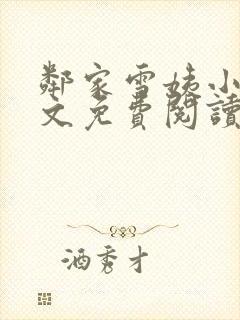 鄰家雪姨小
文免費閱讀
酒秀才